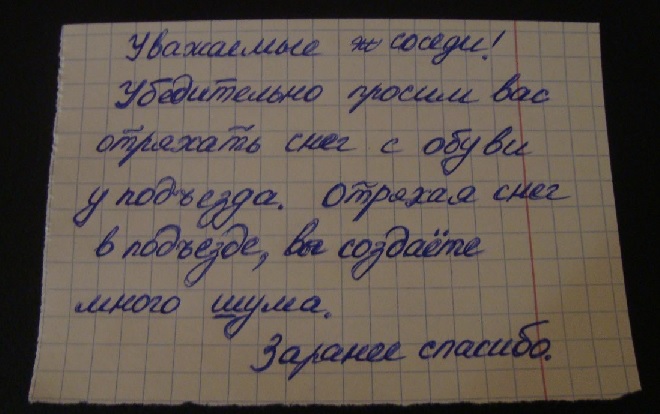 Уважаемые соседи!
Убедительно просим вас
отряхать снег с обуви
у подъезда. Отряхая снег
в подъезде, вы создаёте
много шума.
Заранее спасибо.